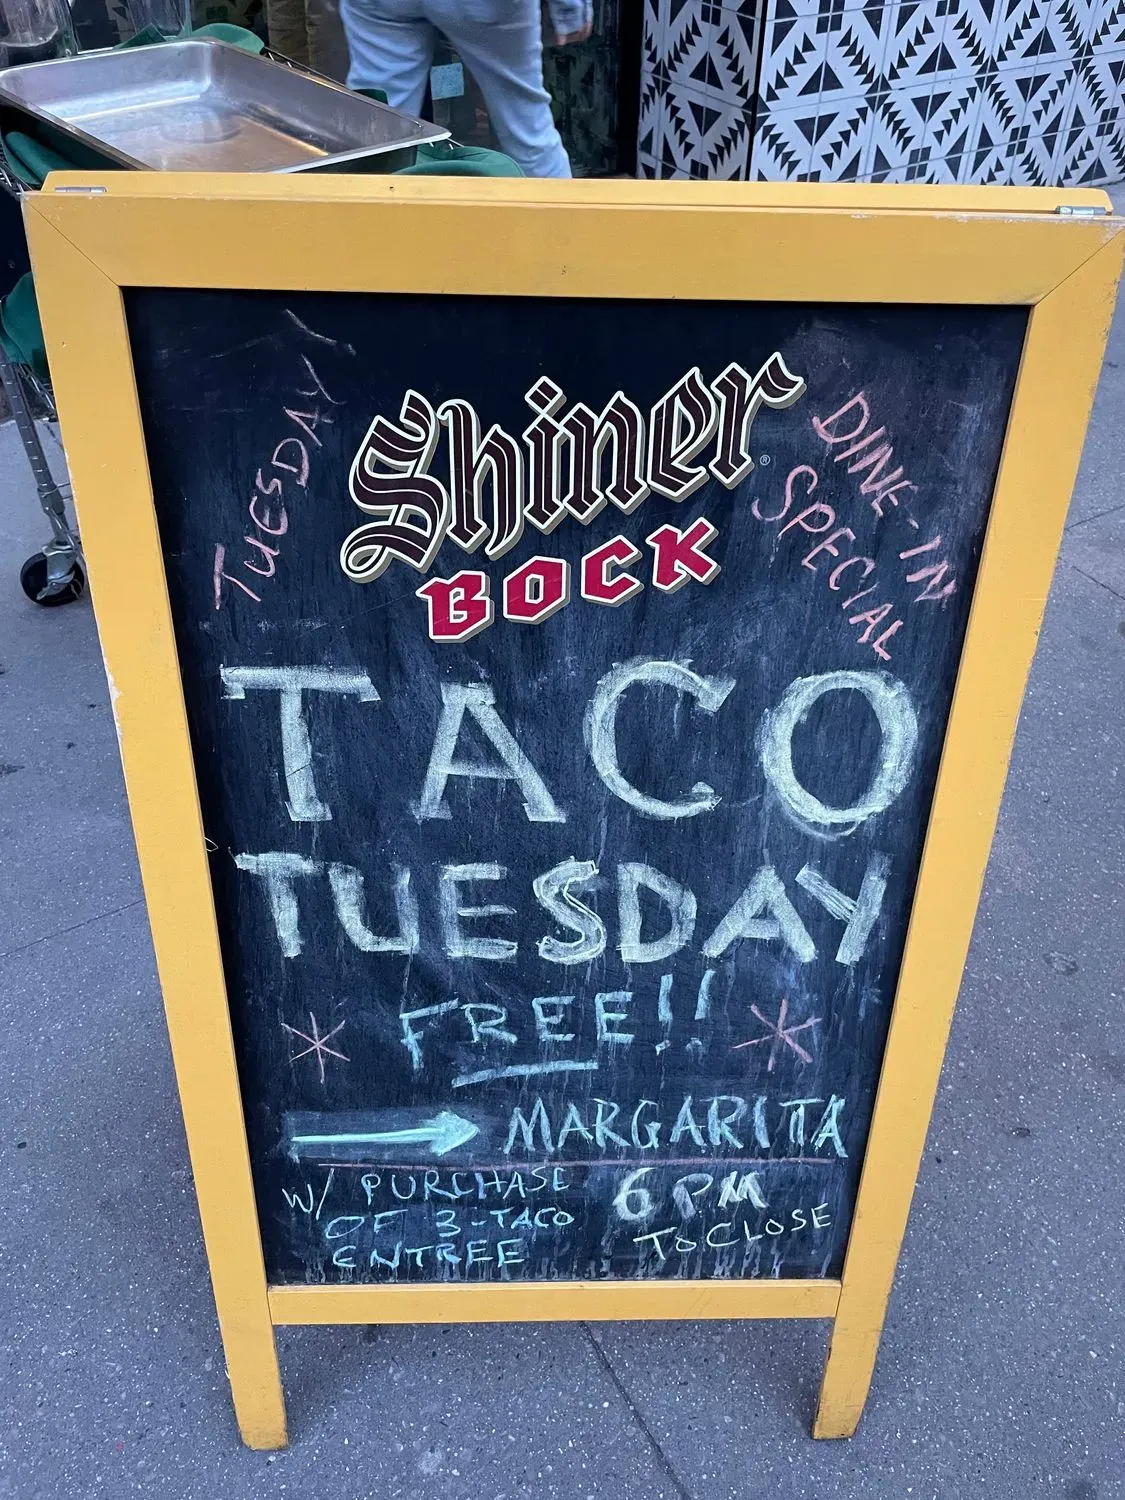 TUESDAY
Shiner®
BOCK
DINE-IN
SPECIAL
TACO
TUESDAY
FREE!!
MARGARITA
W/ PURCHASE
OF 3-TACO
ENTREE
6 PM
TO CLOSE